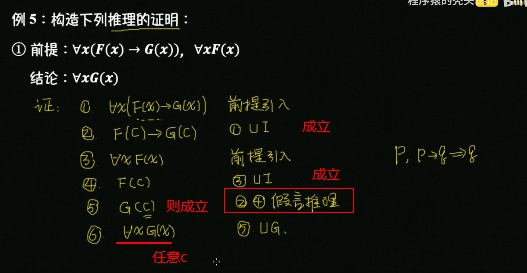 程序猿的秃头
例 5：构造下列推理的证明：
① 前提：∀x(F(x) → G(x))，∀xF(x)
结论：∀xG(x)
证： ① ∀x(F(x)→G(x)) 前提引入
② F(c)→G(c) ① UI 成立
③ ∀xF(x) 前提引入 P, P→q⇒q
④ F(c) ③ UI 成立
⑤ G(c) 则成立 ② ④ 假言推理
⑥ ∀xG(x) ⑤ UG.
任意c